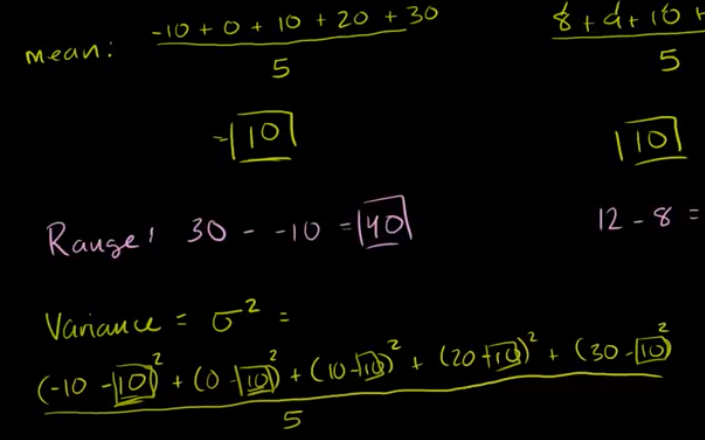 mean: -10 + 0 + 10 + 20 + 30 / 5
8 + 9 + 10 + / 5
= 10
10
Range: 30 - -10 = 40
12 - 8 =
Variance = σ² =
(-10 - 10)² + (0 - 10)² + (10 - 10)² + (20 + 10)² + (30 - 10)² / 5